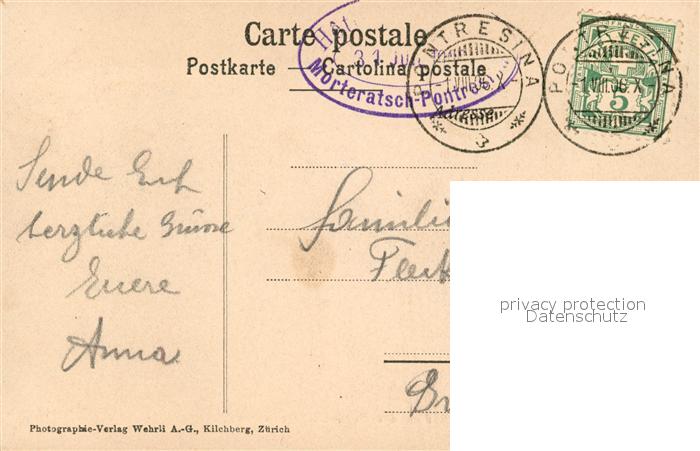 Carte postale
Postkarte — Cartolina postale
31
Morteratsch-Pontresina
PONTRESINA
Adresse
PONTRESINA
HELVETIA
5
Sende Euch
herzliche Grüsse
Euere
Anna
Familie
privacy protection
Datenschutz
Photographie-Verlag Wehrli A.-G., Kilchberg, Zürich